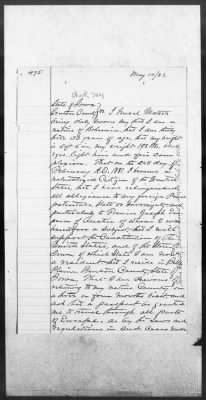 1875 May 10/82
State of Iowa
Benton County ss I
being duly sworn say that I am a
native of Bohemia, that I am thirty
five 33 years of age, that my height
is 5 ft 6 in my weight 180 lbs, blue
eyes, light hair and fair com
plexion. That on the day of
February A.D. 1881 I became a
naturalized Citizen of the United
States, that I have relinquished
all allegiance to any foreign Prince
potentate, State or Sovereignty and
particularly to Francis Joseph Em
peror of Austria of whom I was
heretofore a subject, that I will
support the Constitution of the
United States, and of the State of
Iowa, of which State I am now
a resident, that I reside in Belle
Plaine, Benton County, State of
Iowa. That I am desirous of
returning to my native Country for
a two or four months visit and
ask that a passport be granted
me to travel through all parts
of Europe, as by the laws and
regulations in such cases made